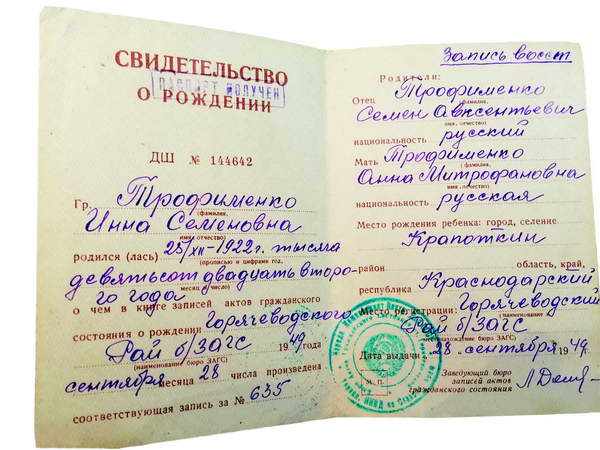 СВИДЕТЕЛЬСТВО
ПАСПОРТ ПОЛУЧЕН
О РОЖДЕНИИ
ДШ № 144642
Гр. Трофименко
(фамилия,
Инна Семеновна
имя, отчество)
родился (лась) 28/XII-1922 г. тысяча
(прописью и цифрами год,
девятьсот двадцать второ-
месяц и число)
го года
о чем в книге записей актов гражданского
состояния о рождении Горячеводского
Рай б/ЗАГС 1949 года
(наименование бюро ЗАГС)
сентября месяца 28 числа произведена
соответствующая запись за № 635
Запись восст
Родители:
Отец Трофименко
(фамилия,
Семен Авксентьевич
имя, отчество)
национальность русский
Мать Трофименко
(фамилия,
Анна Митрофановна
имя, отчество)
национальность русская
Место рождения ребенка: город, селение
Крапоткин
район область, край,
республика Краснодарский
Место регистрации: Горячеводский
(наименование
Рай б/ЗАГС
местонахождение бюро ЗАГС)
Дата выдачи 28 сентября 1949 г.
М. П.
Заведующий бюро
записей актов
гражданского состояния